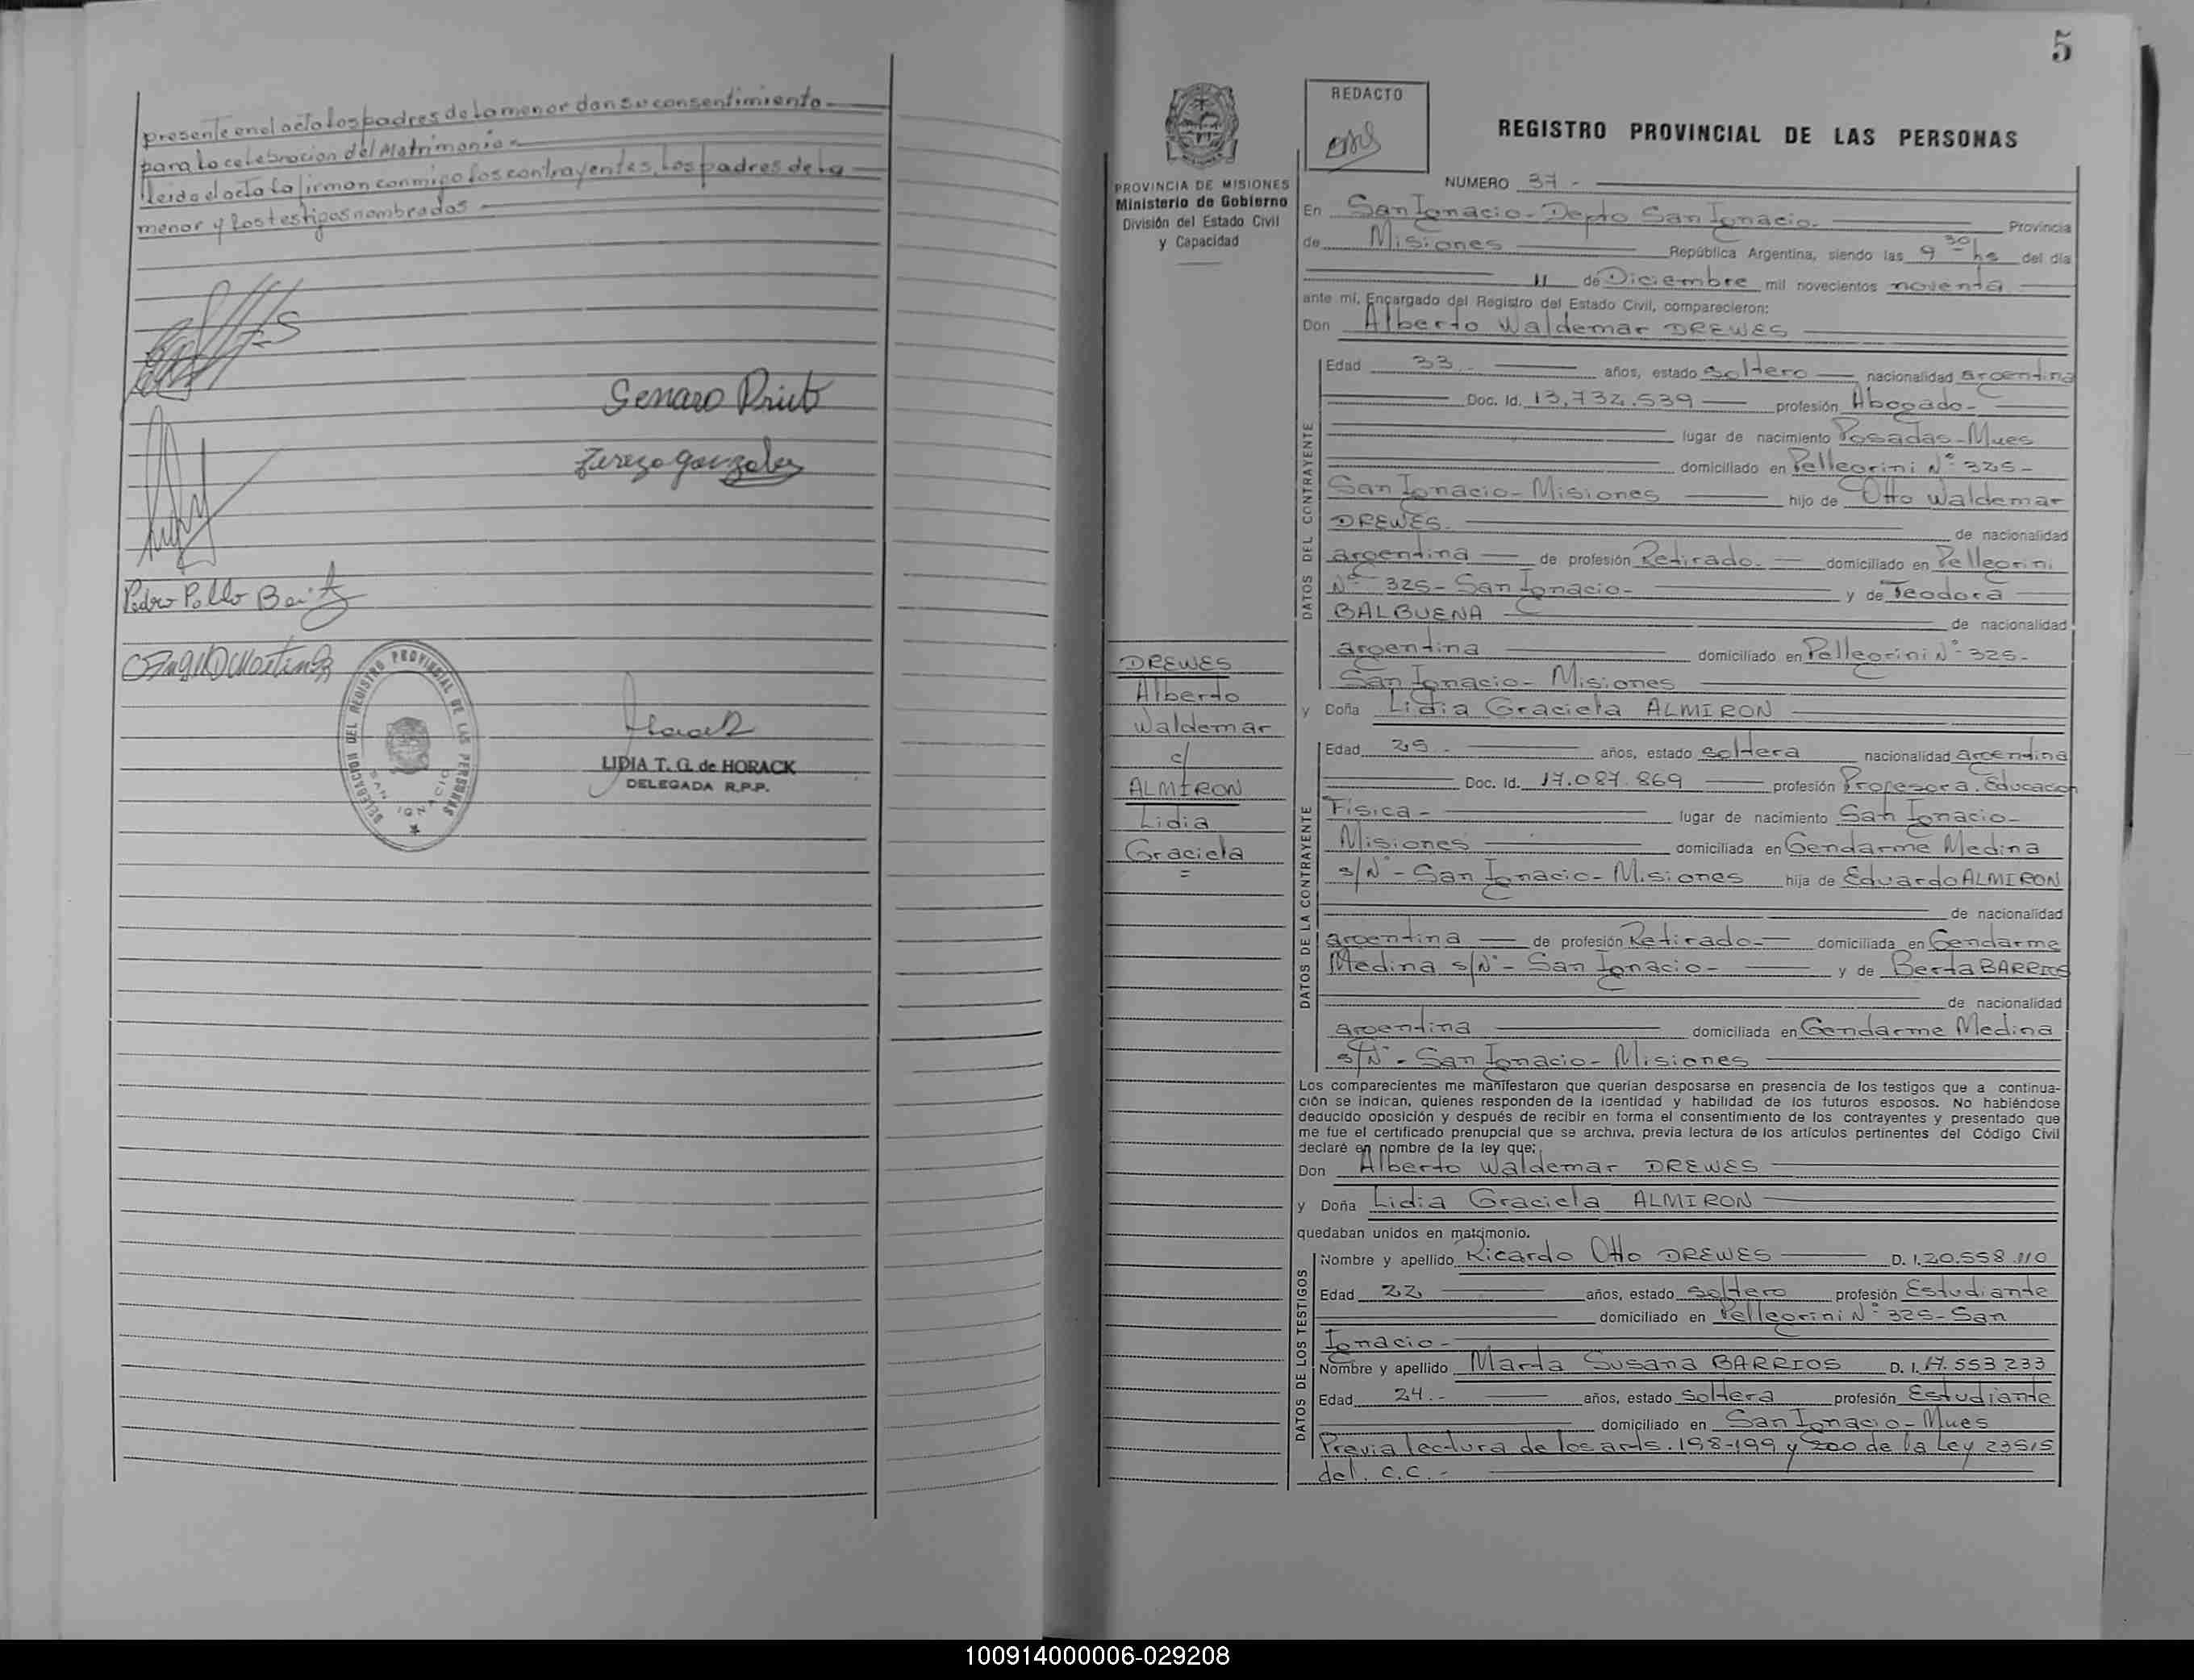 presente en el acto los padres de la menor dan su consentimiento
para la celebracion del Matrimonio
leida el acta la firman conmigo los contrayentes, los padres de la
menor y los testigos nombrados
Genaro Prieto
Tereza Gonzalez
Pedro Pablo Beitz
LIDIA T. G. de HORACK
DELEGADA R.P.P.
DELEGACION DEL REGISTRO PROVINCIAL DE LAS PERSONAS
SAN IGNACIO
5
PROVINCIA DE MISIONES
Ministerio de Gobierno
División del Estado Civil
y Capacidad
REDACTO
REGISTRO PROVINCIAL DE LAS PERSONAS
NUMERO 37 -
En San Ignacio - Depto San Ignacio. Provincia
de Misiones República Argentina, siendo las 9 30 hs del día
11 de Diciembre mil novecientos noventa
ante mí, Encargado del Registro del Estado Civil, comparecieron:
Don Alberto Waldemar DREWES
DATOS DEL CONTRAYENTE
Edad 33 años, estado soltero nacionalidad argentina
Doc. Id. 13.732.539 profesión Abogado -
lugar de nacimiento Posadas - Mnes
domiciliado en Pellegrini Nº 325 -
San Ignacio - Misiones hijo de Otto Waldemar
DREWES. de nacionalidad
argentina de profesión Retirado. domiciliado en Pellegrini
Nº 325 - San Ignacio - y de Teodora
BALBUENA de nacionalidad
argentina domiciliado en Pellegrini Nº 325 -
San Ignacio - Misiones
y Doña Lidia Graciela ALMIRON
DREWES
Alberto
Waldemar
c/
ALMIRON
Lidia
Graciela
=
DATOS DE LA CONTRAYENTE
Edad 25 - años, estado soltera nacionalidad argentina
Doc. Id. 17.087.869 profesión Profesora. Educacion
Física - lugar de nacimiento San Ignacio -
Misiones domiciliada en Gendarme Medina
s/Nº - San Ignacio - Misiones hija de Eduardo ALMIRON
de nacionalidad
argentina de profesión Retirado - domiciliada en Gendarme
Medina s/Nº - San Ignacio - y de Berta BARRIOS
de nacionalidad
argentina domiciliada en Gendarme Medina
s/Nº - San Ignacio - Misiones
Los comparecientes me manifestaron que querían desposarse en presencia de los testigos que a continua-
ción se indican, quienes responden de la identidad y habilidad de los futuros esposos. No habiéndose
deducido oposición y después de recibir en forma el consentimiento de los contrayentes y presentado que
me fue el certificado prenupcial que se archiva, previa lectura de los artículos pertinentes del Código Civil
declaré en nombre de la ley que:
Don Alberto Waldemar DREWES
y Doña Lidia Graciela ALMIRON
quedaban unidos en matrimonio.
DATOS DE LOS TESTIGOS
Nombre y apellido Ricardo Otto DREWES D. I. 20.558.110
Edad 22 años, estado soltero profesión Estudiante
domiciliado en Pellegrini Nº 325 - San
Ignacio -
Nombre y apellido Marta Susana BARRIOS D. I. 17.553.233
Edad 24 - años, estado soltera profesión Estudiante
domiciliado en San Ignacio - Mnes
Previa lectura de los arts. 198-199 y 200 de la Ley 23515
del. C.C. -
100914000006-029208